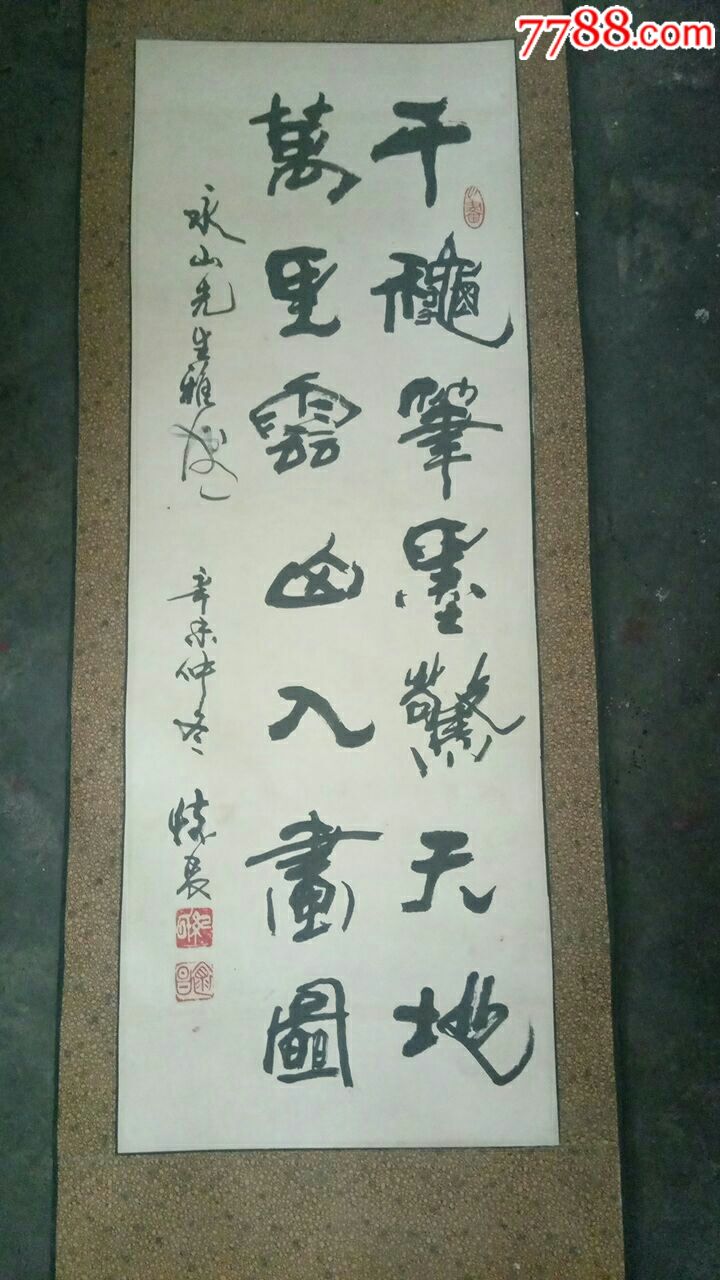 7788.com
千穐筆墨驚天地
萬里雲山入畫圖
永山先生雅
辛未仲冬